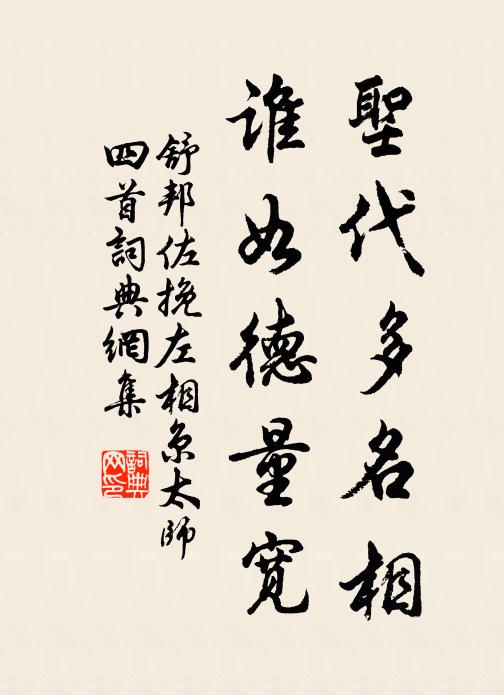 聖代多名相
誰如德量寬
舒邦佐挽左相京太師
四首詞典網集
詞典
网印